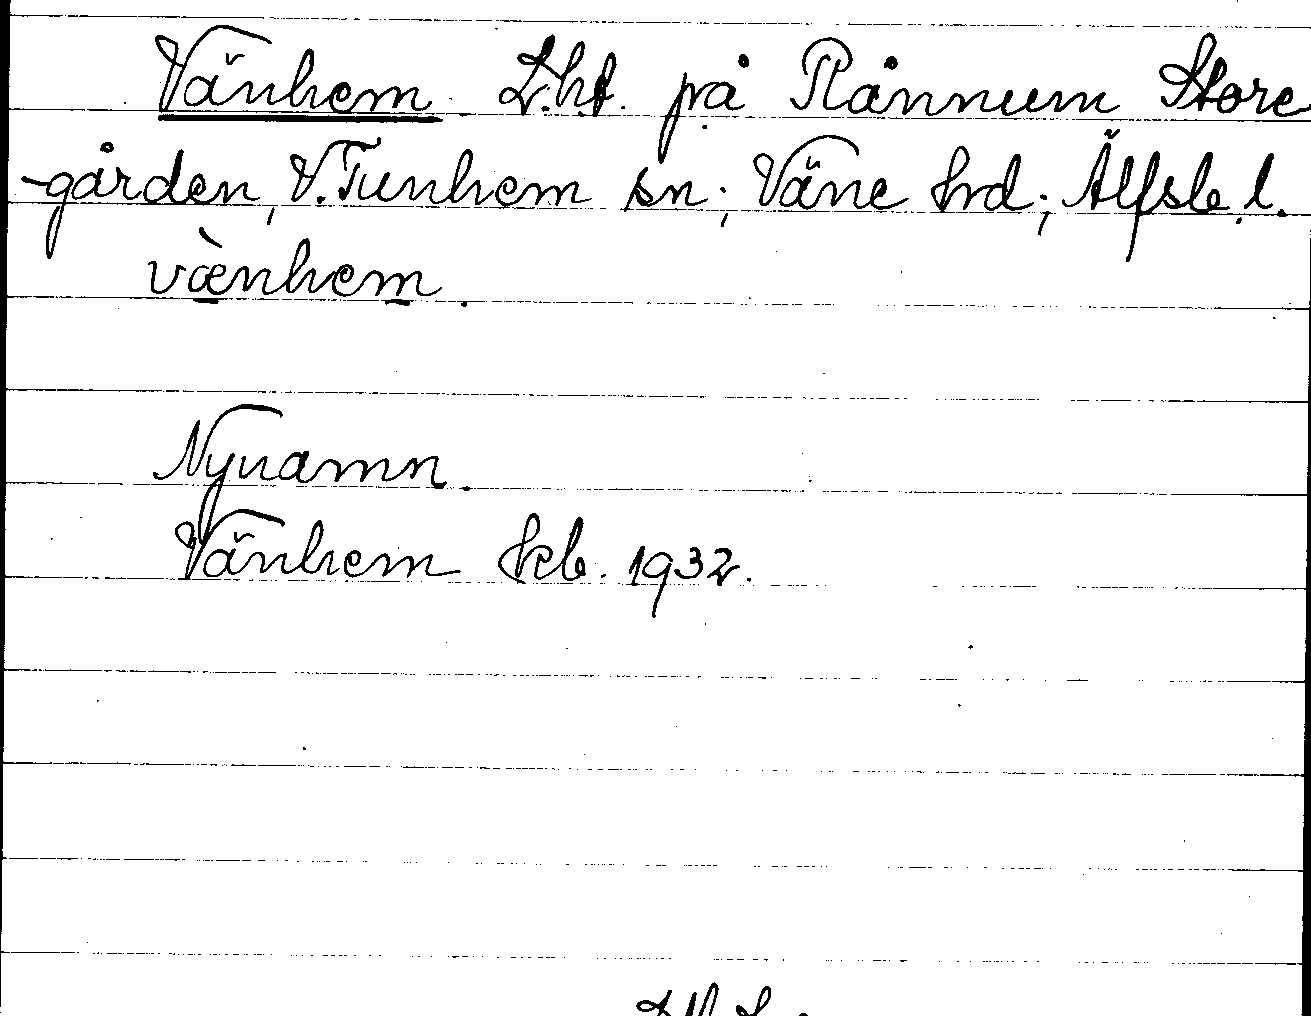 Vänhem L.ht. på Rånnum Store
-gården, V.Tunhem sn; Väne hrd; Älfsb.l.
vànhem.
Nynamn.
Vänhem feb. 1932.